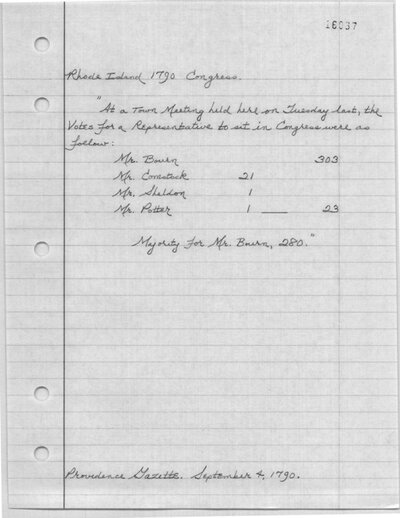 16037
Rhode Island 1790 Congress.
"At a Town Meeting held here on Tuesday last, the
Votes for a Representative to sit in Congress were as
follow:
Mr. Bourn 303
Mr. Comstock 21
Mr. Sheldon 1
Mr. Potter 1 — 23
Majority for Mr. Bourn, 280."
Providence Gazette. September 4, 1790.